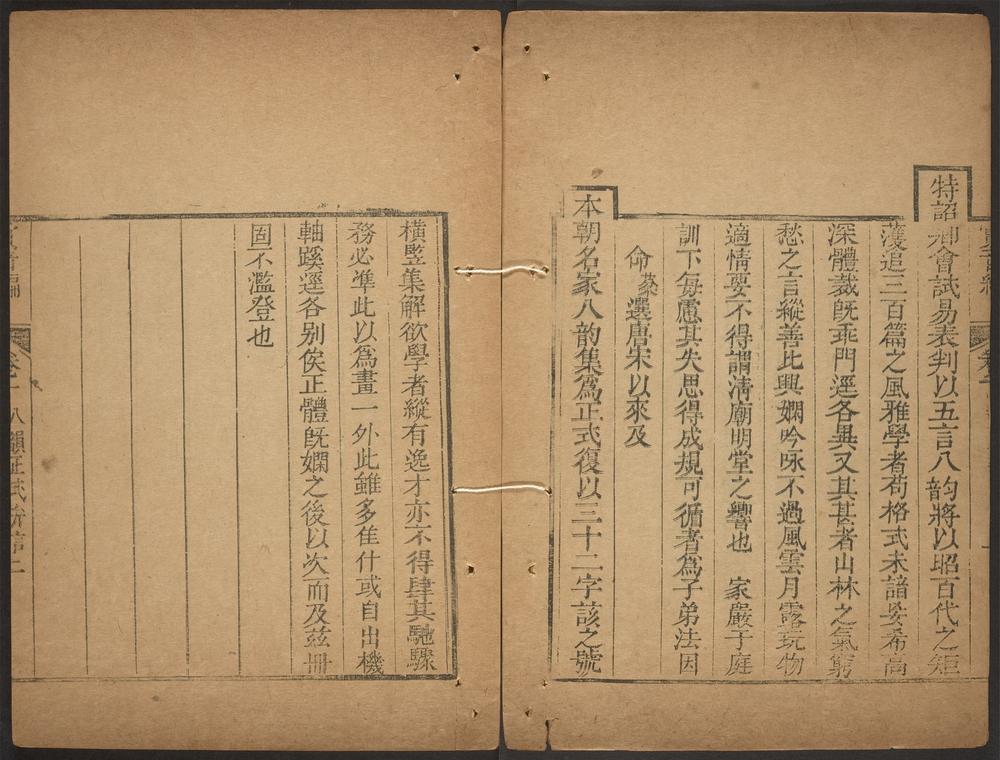 特詔神會試易表判以五言八韵將以昭百代之矩
䕶追三百篇之風雅學者苟格式未諳妄希高
深體裁既乖門逕各異又其甚者山林之氣窮
愁之言縱善比興嫻吟咏不過風雲月露玩物
適情要不得謂淸廟明堂之響也　家嚴于庭
訓下每慮其失思得成規可循者爲子弟法因
命蓁選唐宋以來及
本朝名家八韵集爲正式復以三十二字該之號
橫竪集解欲學者縱有逸才亦不得肆其馳驟
務必準此以爲畫一外此雖多隹什或自出機
軸蹊逕各别俟正體旣嫻之後以次而及茲冊
固不濫登也
卷一 八韻正式弁言二